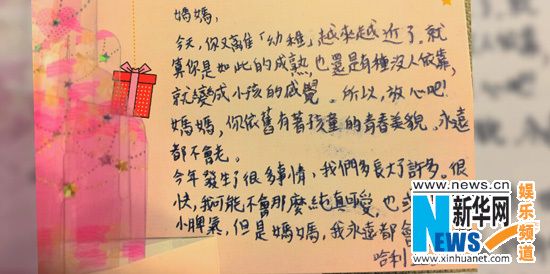 媽媽,
今天,你又離「幼稚」越來越近了,就
算你是如此的成熟也還是有種沒人依靠,
就變成小孩的感覺。所以,放心吧!
媽媽,你依舊有著孩童的青春美貌。永遠
都不會老。
今年發生了很多事情,我們多長大了許多。很
快,我可能不會那麼純真可愛,也
小脾氣,但是媽媽,我永遠都會
哈利
www.news.cn
新华网
NEWS
www.xinhuanet.com
娱乐频道